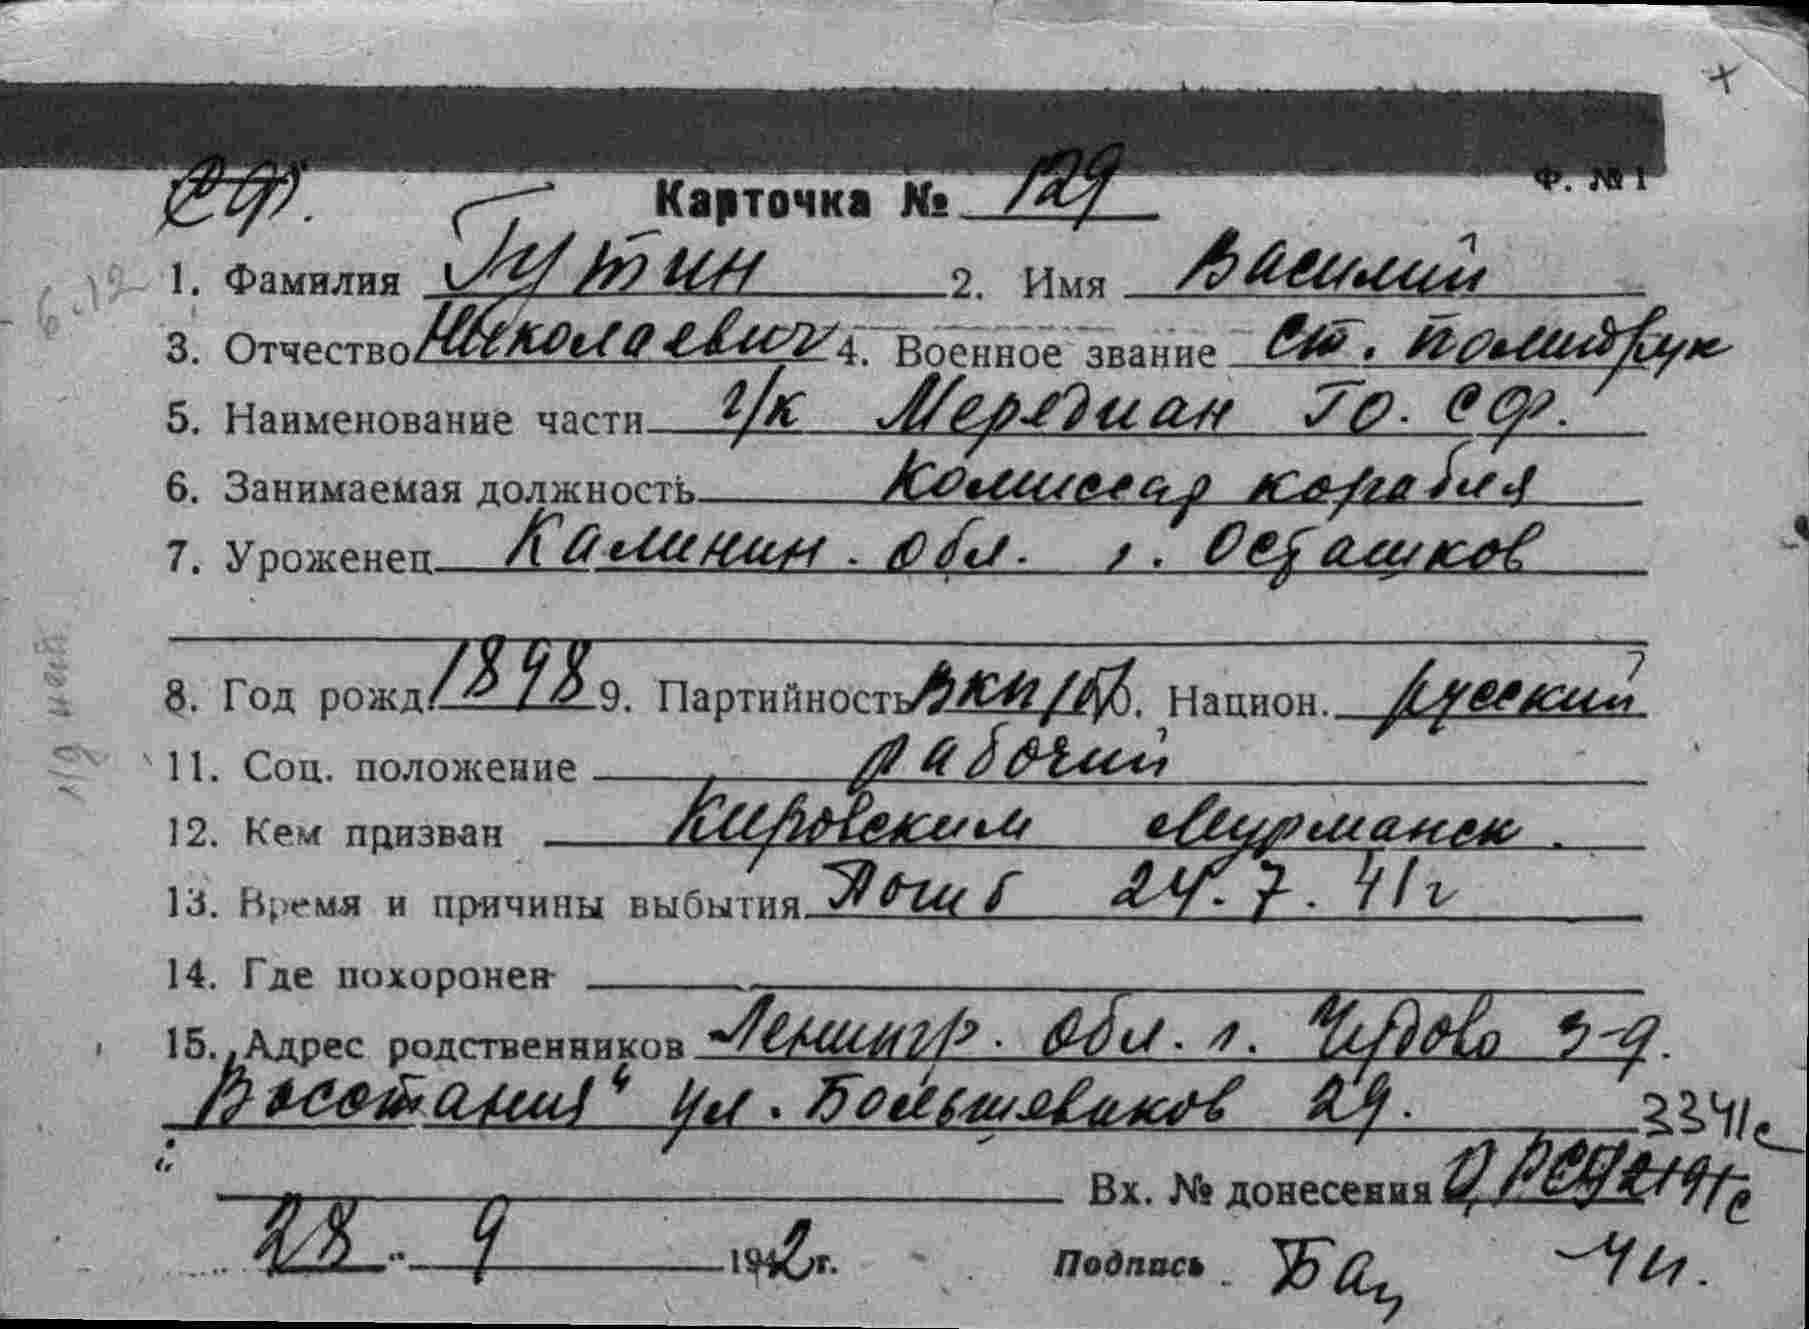 СФ.
Ф. № 1
Карточка № 129
1. Фамилия Гутин 2. Имя Василий
3. Отчество Николаевич 4. Военное звание ст. политрук
5. Наименование части г/к Мередиан ГО. СФ.
6. Занимаемая должность Комиссар корабля
7. Уроженец Калинин. обл. г. Осташков
8. Год рожд. 1898 9. Партийность ВКП/б/ 10. Национ. русский
11. Соц. положение рабочий
12. Кем призван Кировским Мурманск.
13. Время и причины выбытия Погиб 24.7.41г
14. Где похоронен
15. Адрес родственников Ленингр. обл. г. Чудово з-д.
"Восстания" ул. Большевиков 29.
3341с
Вх. № донесения
28 " 9 1942 г. Подпись Бац
6.12